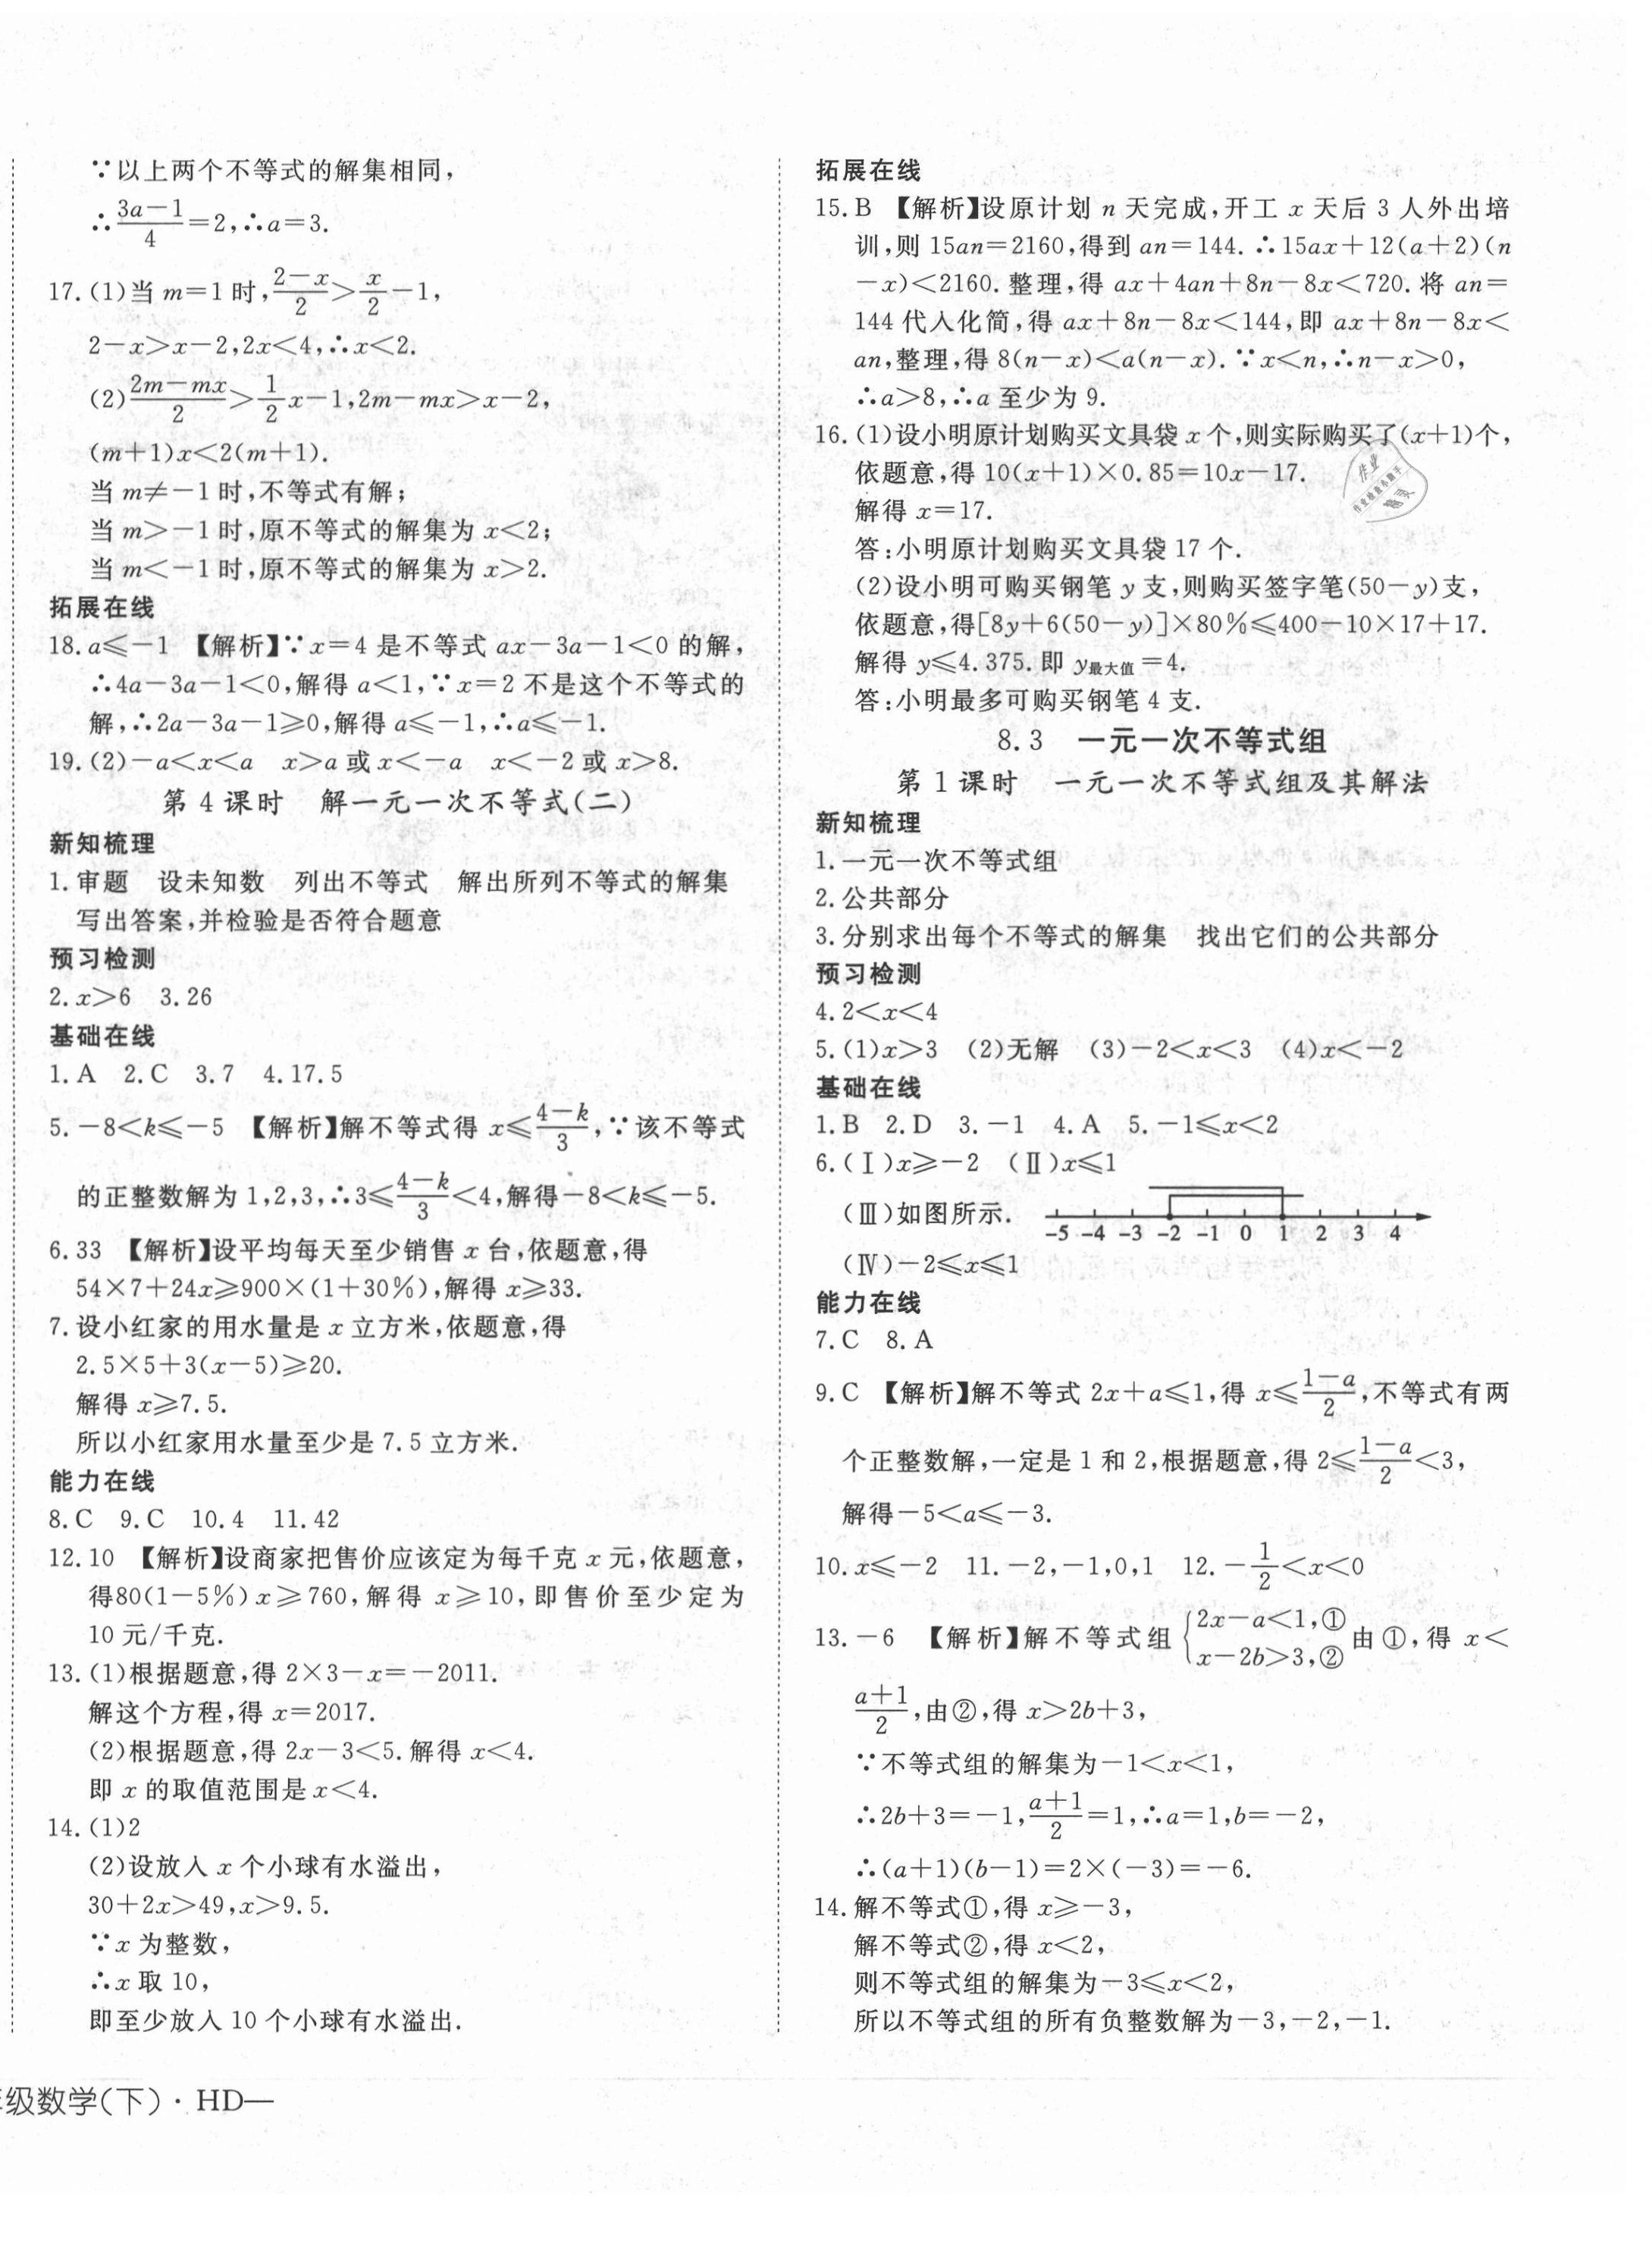 ∵以上两个不等式的解集相同,
∴(3a－1)/4＝2,∴a＝3.
17.(1)当 m＝1 时,(2－x)/2＞x/2－1,
2－x＞x－2,2x＜4,∴x＜2.
(2)(2m－mx)/2＞1/2 x－1,2m－mx＞x－2,
(m＋1)x＜2(m＋1).
当 m≠－1 时,不等式有解;
当 m＞－1 时,原不等式的解集为 x＜2;
当 m＜－1 时,原不等式的解集为 x＞2.
拓展在线
18.a≤－1 【解析】∵x＝4 是不等式 ax－3a－1＜0 的解,
∴4a－3a－1＜0,解得 a＜1,∵x＝2 不是这个不等式的
解,∴2a－3a－1≥0,解得 a≤－1,∴a≤－1.
19.(2)－a＜x＜a x＞a 或 x＜－a x＜－2 或 x＞8.
第 4 课时 解一元一次不等式(二)
新知梳理
1.审题 设未知数 列出不等式 解出所列不等式的解集
写出答案,并检验是否符合题意
预习检测
2.x＞6 3.26
基础在线
1.A 2.C 3.7 4.17.5
5.－8＜k≤－5 【解析】解不等式得 x≤(4－k)/3,∵该不等式
的正整数解为 1,2,3,∴3≤(4－k)/3＜4,解得－8＜k≤－5.
6.33 【解析】设平均每天至少销售 x 台,依题意,得
54×7＋24x≥900×(1＋30%),解得 x≥33.
7.设小红家的用水量是 x 立方米,依题意,得
2.5×5＋3(x－5)≥20.
解得 x≥7.5.
所以小红家用水量至少是 7.5 立方米.
能力在线
8.C 9.C 10.4 11.42
12.10 【解析】设商家把售价应该定为每千克 x 元,依题意,
得80(1－5%)x≥760,解得 x≥10,即售价至少定为
10 元/千克.
13.(1)根据题意,得 2×3－x＝－2011.
解这个方程,得 x＝2017.
(2)根据题意,得 2x－3＜5.解得 x＜4.
即 x 的取值范围是 x＜4.
14.(1)2
(2)设放入 x 个小球有水溢出,
30＋2x＞49,x＞9.5.
∵x 为整数,
∴x 取 10,
即至少放入 10 个小球有水溢出.
拓展在线
15.B 【解析】设原计划 n 天完成,开工 x 天后 3 人外出培
训,则 15an＝2160,得到 an＝144.∴15ax＋12(a＋2)(n
－x)＜2160.整理,得 ax＋4an＋8n－8x＜720.将 an＝
144 代入化简,得 ax＋8n－8x＜144,即 ax＋8n－8x＜
an,整理,得 8(n－x)＜a(n－x).∵x＜n,∴n－x＞0,
∴a＞8,∴a 至少为 9.
16.(1)设小明原计划购买文具袋 x 个,则实际购买了(x＋1)个,
依题意,得 10(x＋1)×0.85＝10x－17.
解得 x＝17.
答:小明原计划购买文具袋 17 个.
(2)设小明可购买钢笔 y 支,则购买签字笔(50－y)支,
依题意,得[8y＋6(50－y)]×80%≤400－10×17＋17.
解得 y≤4.375.即 y最大值＝4.
答:小明最多可购买钢笔 4 支.
8.3 一元一次不等式组
第 1 课时 一元一次不等式组及其解法
新知梳理
1.一元一次不等式组
2.公共部分
3.分别求出每个不等式的解集 找出它们的公共部分
预习检测
4.2＜x＜4
5.(1)x＞3 (2)无解 (3)－2＜x＜3 (4)x＜－2
基础在线
1.B 2.D 3.－1 4.A 5.－1≤x＜2
6.(Ⅰ)x≥－2 (Ⅱ)x≤1
(Ⅲ)如图所示.
-5 -4 -3 -2 -1 0 1 2 3 4
(Ⅳ)－2≤x≤1
能力在线
7.C 8.A
9.C 【解析】解不等式 2x＋a≤1,得 x≤(1－a)/2,不等式有两
个正整数解,一定是 1 和 2,根据题意,得 2≤(1－a)/2＜3,
解得－5＜a≤－3.
10.x≤－2 11.－2,－1,0,1 12.－1/2＜x＜0
13.－6 【解析】解不等式组{2x－a＜1,① x－2b＞3,② 由①,得 x＜
(a＋1)/2,由②,得 x＞2b＋3,
∵不等式组的解集为－1＜x＜1,
∴2b＋3＝－1,(a＋1)/2＝1,∴a＝1,b＝－2,
∴(a＋1)(b－1)＝2×(－3)＝－6.
14.解不等式①,得 x≥－3,
解不等式②,得 x＜2,
则不等式组的解集为－3≤x＜2,
所以不等式组的所有负整数解为－3,－2,－1.
级数学(下)·HD—